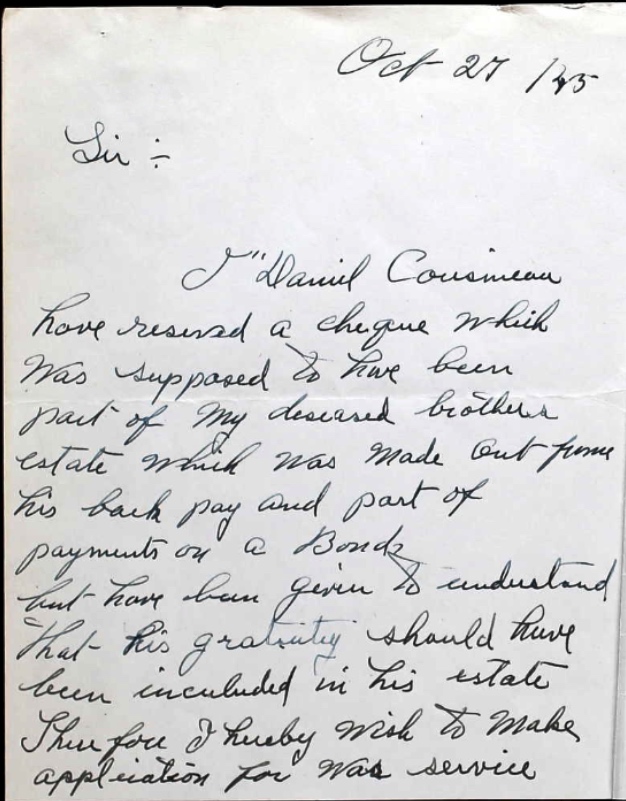 Oct 27 /45
Sir :-
I" Daniel Cousineau
have reserved a cheque which
was supposed to have been
part of my deseased brothers
estate which was made out frome
his back pay and part of
payments on a Bond
but have been given to understand
that his gratuity should have
been incululed in his estate
Therefore I hereby wish to make
application for war service